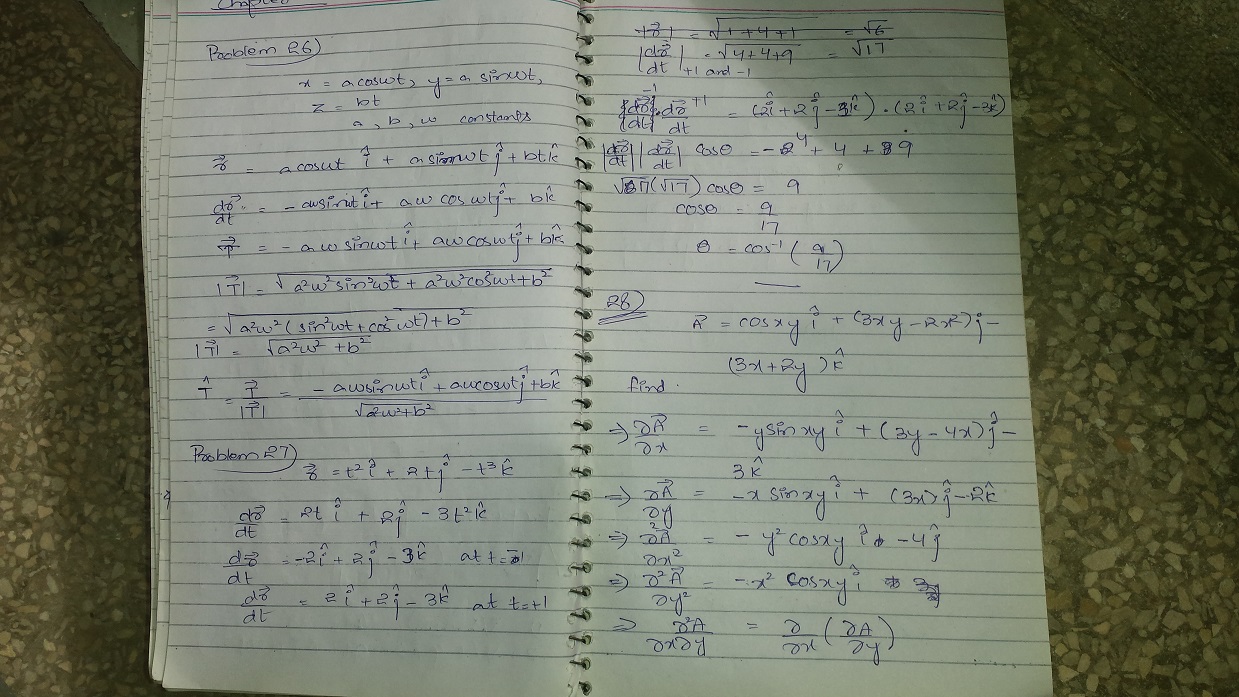 Problem 26)
x = a cosωt, y = a sinωt,
z = bt
a, b, ω constants
r⃗ = a cosωt î + a sinωt ĵ + bt k̂
dr⃗/dt = - aωsinωt î + aω cos ωt ĵ + b k̂
T⃗ = - aω sinωt î + aω cosωt ĵ + b k̂
|T⃗| = √(a²ω² sin²ωt + a²ω² cos²ωt + b²)
= √(a²ω² (sin²ωt + cos²ωt) + b²)
|T⃗| = √(a²ω² + b²)
T̂ = T⃗/|T⃗| = (- aωsinωt î + aωcosωt ĵ + b k̂)/√(a²ω² + b²)
Problem 27)
r⃗ = t² î + 2t ĵ - t³ k̂
dr⃗/dt = 2t î + 2 ĵ - 3t² k̂
dr⃗/dt = -2 î + 2 ĵ - 3 k̂ at t = -1
dr⃗/dt = 2 î + 2 ĵ - 3 k̂ at t = +1
|r⃗| = √(1+4+1) = √6
|dr⃗/dt| = √(4+4+9) = √17
+1 and -1
-1 +1
dr⃗/dt . dr⃗/dt = (2 î + 2 ĵ - 3 k̂) . (2 î + 2 ĵ - 3 k̂)
|dr⃗/dt| |dr⃗/dt| cosθ = - 4 + 4 + 9
√17 (√17) cosθ = 9
cosθ = 9/17
θ = cos⁻¹ (9/17)
28)
A⃗ = cosxy î + (3xy - 2x²) ĵ -
(3x + 2y) k̂
find
⇒ ∂A⃗/∂x = -y sinxy î + (3y - 4x) ĵ -
3 k̂
⇒ ∂A⃗/∂y = -x sinxy î + (3x) ĵ - 2 k̂
⇒ ∂²A⃗/∂x² = - y² cosxy î - 4 ĵ
⇒ ∂²A⃗/∂y² = - x² cosxy î
⇒ ∂²A/∂x∂y = ∂/∂x (∂A/∂y)